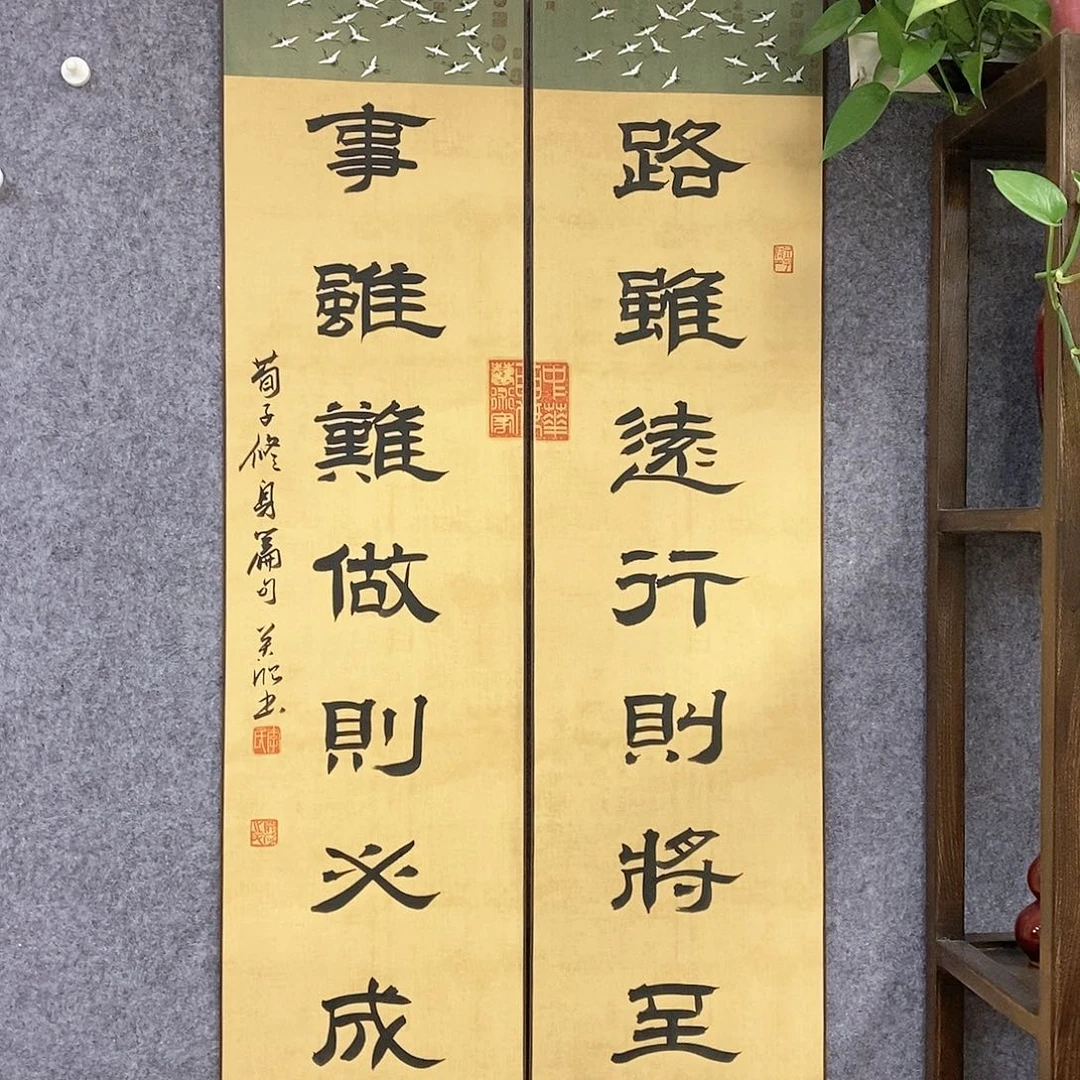 路雖遠行則將至
事雖難做則必成
荀子修身篇句
中華